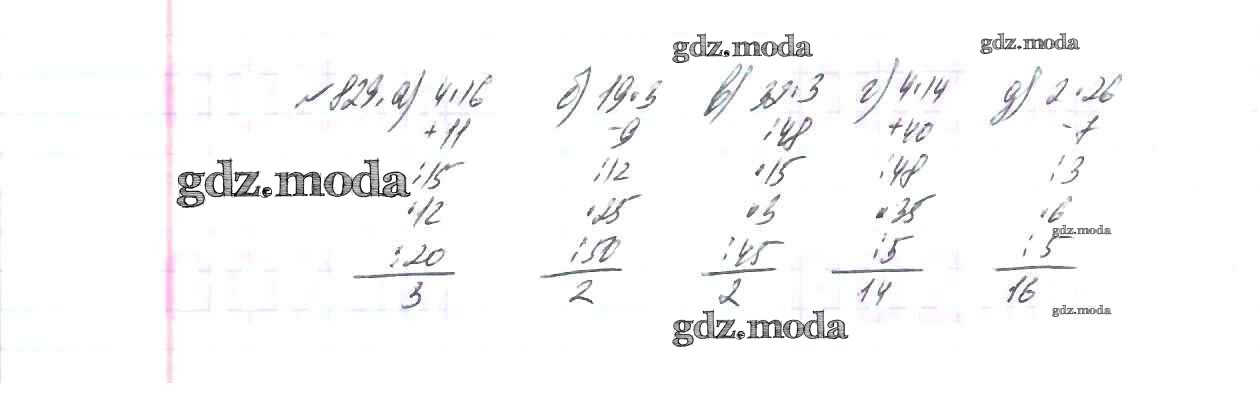 gdz.moda
gdz.moda
№ 829. а) 4·16 б) 19·3 в) 32·3 г) 4·14 д) 2·26
+11 -9 :48 +40 -7
:15 :12 ·15 :48 :3
gdz.moda
·12 ·25 ·3 ·35 ·6
gdz.moda
:20 :50 :45 :5 :5
3 2 2 14 16
gdz.moda
gdz.moda